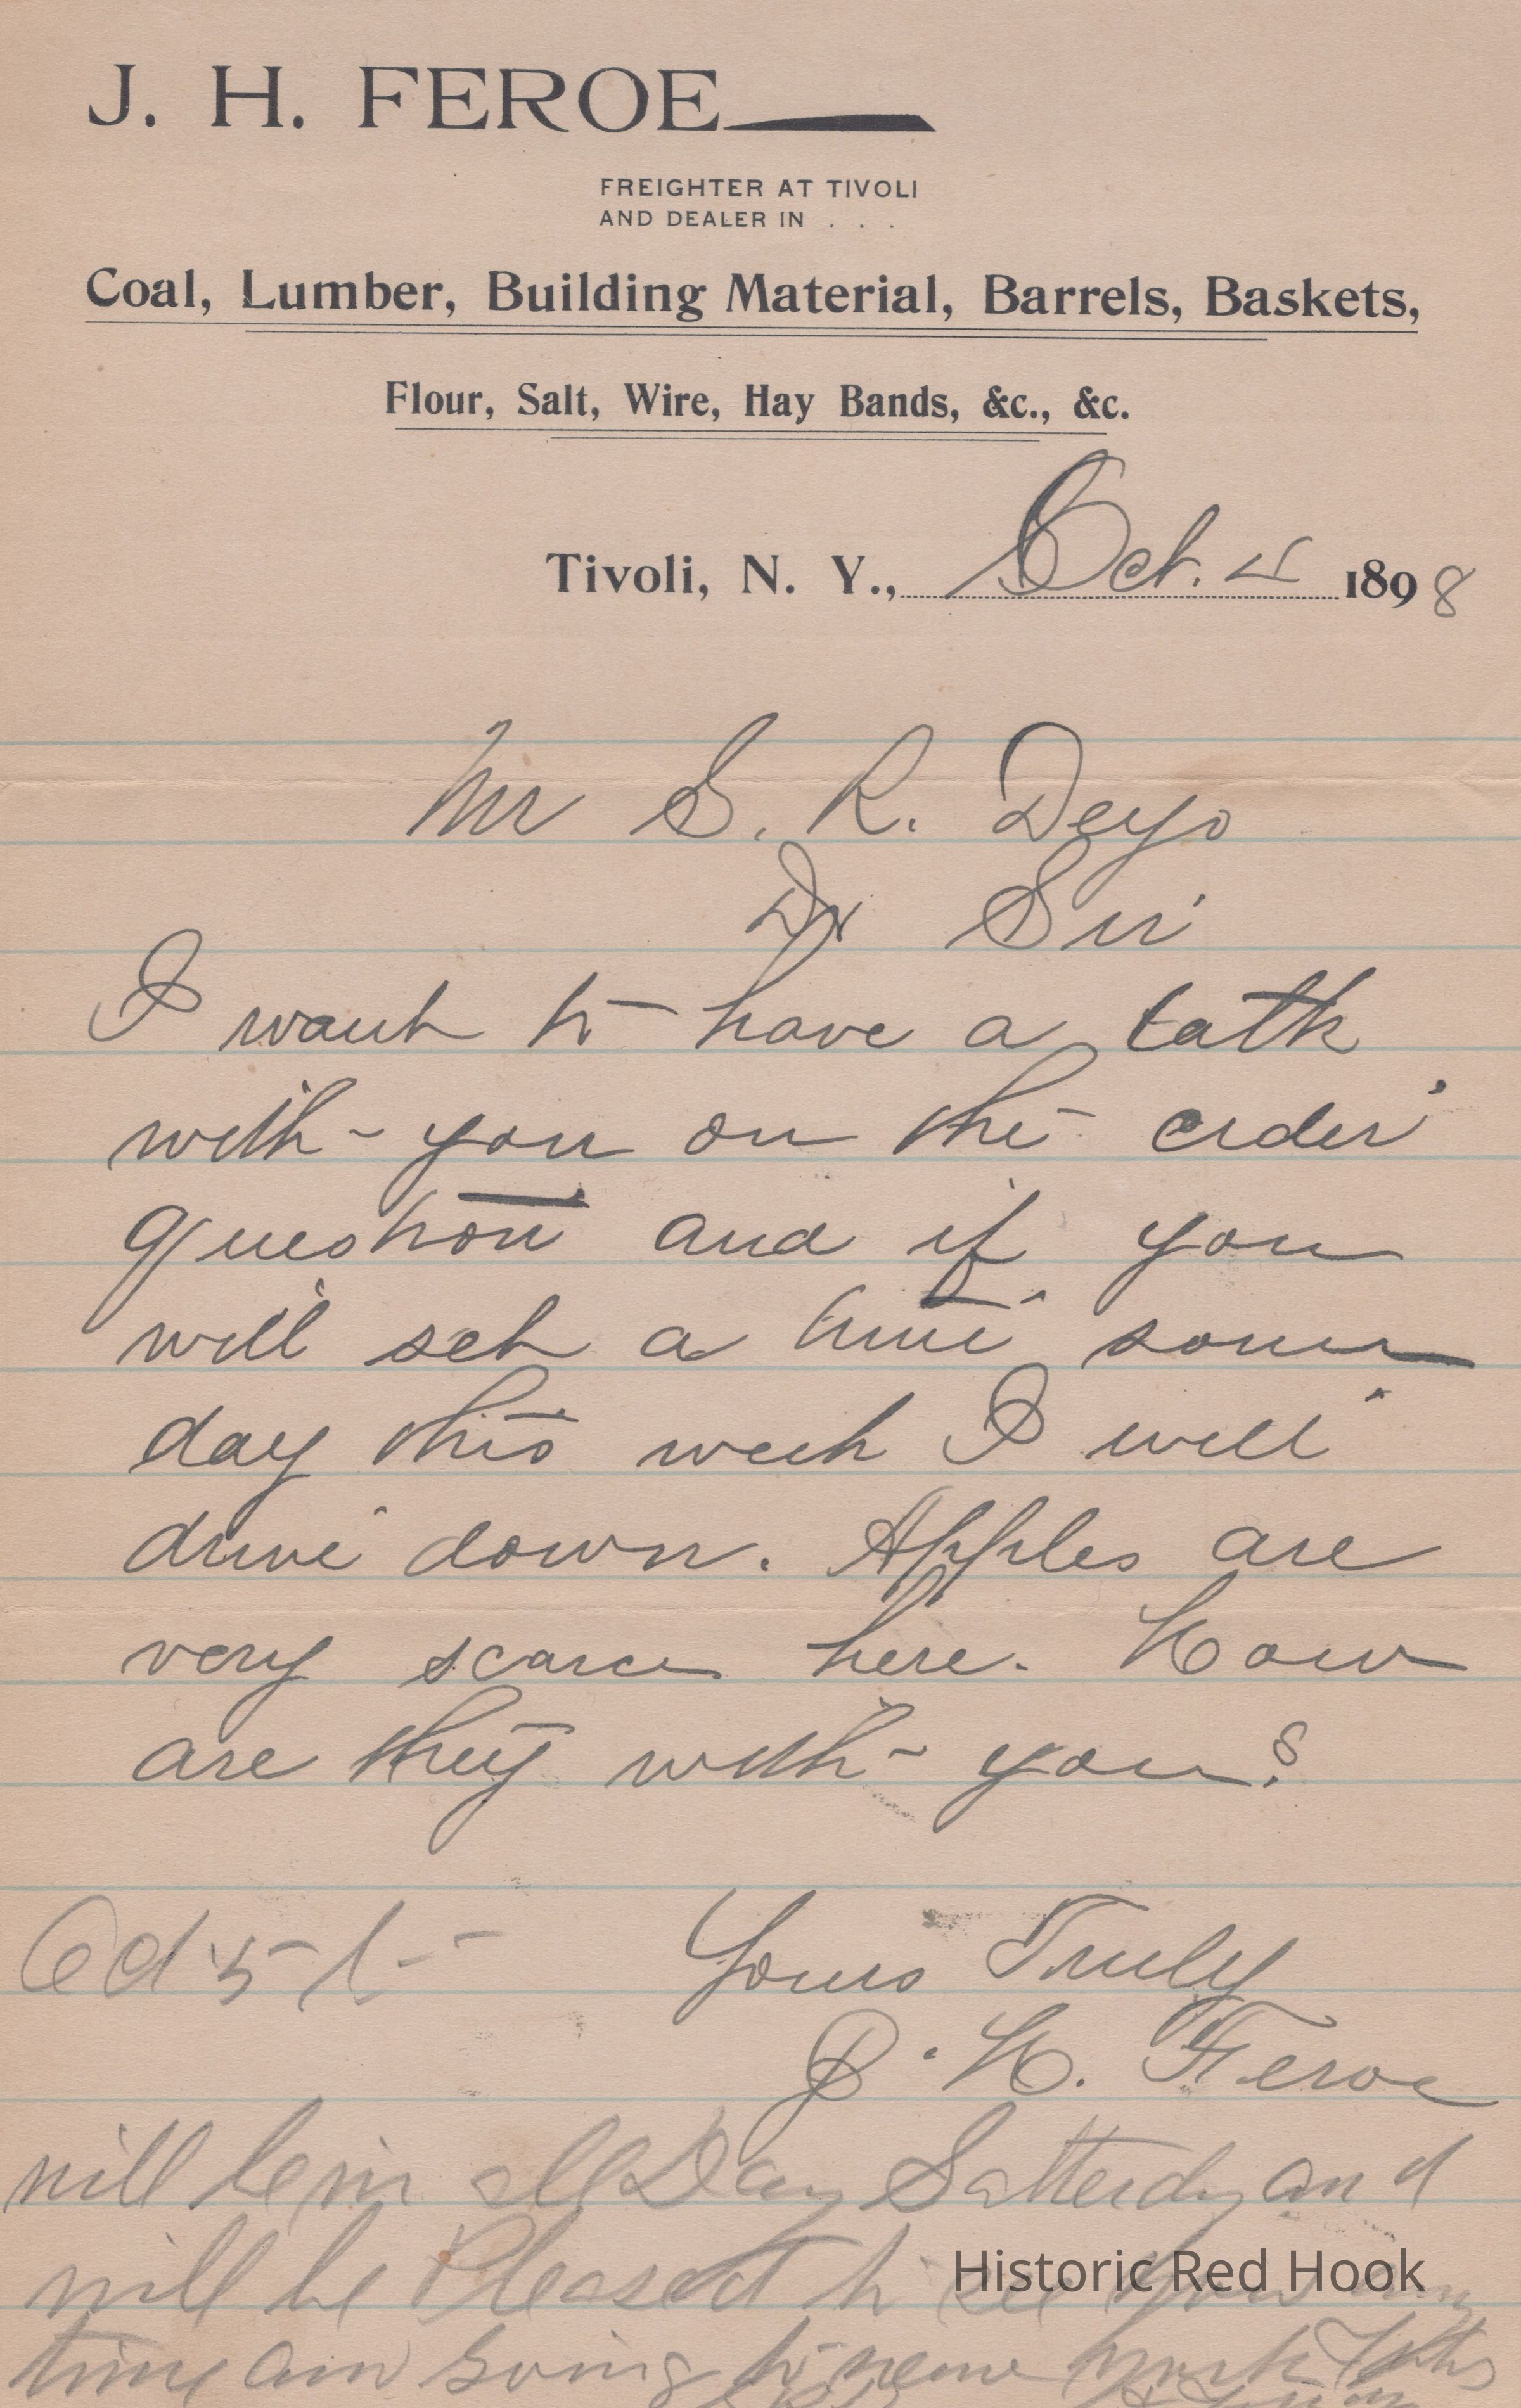 J. H. FEROE
FREIGHTER AT TIVOLI
AND DEALER IN . . .
Coal, Lumber, Building Material, Barrels, Baskets,
Flour, Salt, Wire, Hay Bands, &c., &c.
Tivoli, N. Y., Oct. 4 1898
Mr S. R. Deyo
Dr Sir
I want to have a talk
with you on the cider
question and if you
will set a time some
day this week I will
drive down. Apples are
very scarce here. How
are they with you?
Yours Truly
J. H. Feroe
will be in all Day Satterdy and
will be Pleased to see you any
time am going to
Historic Red Hook